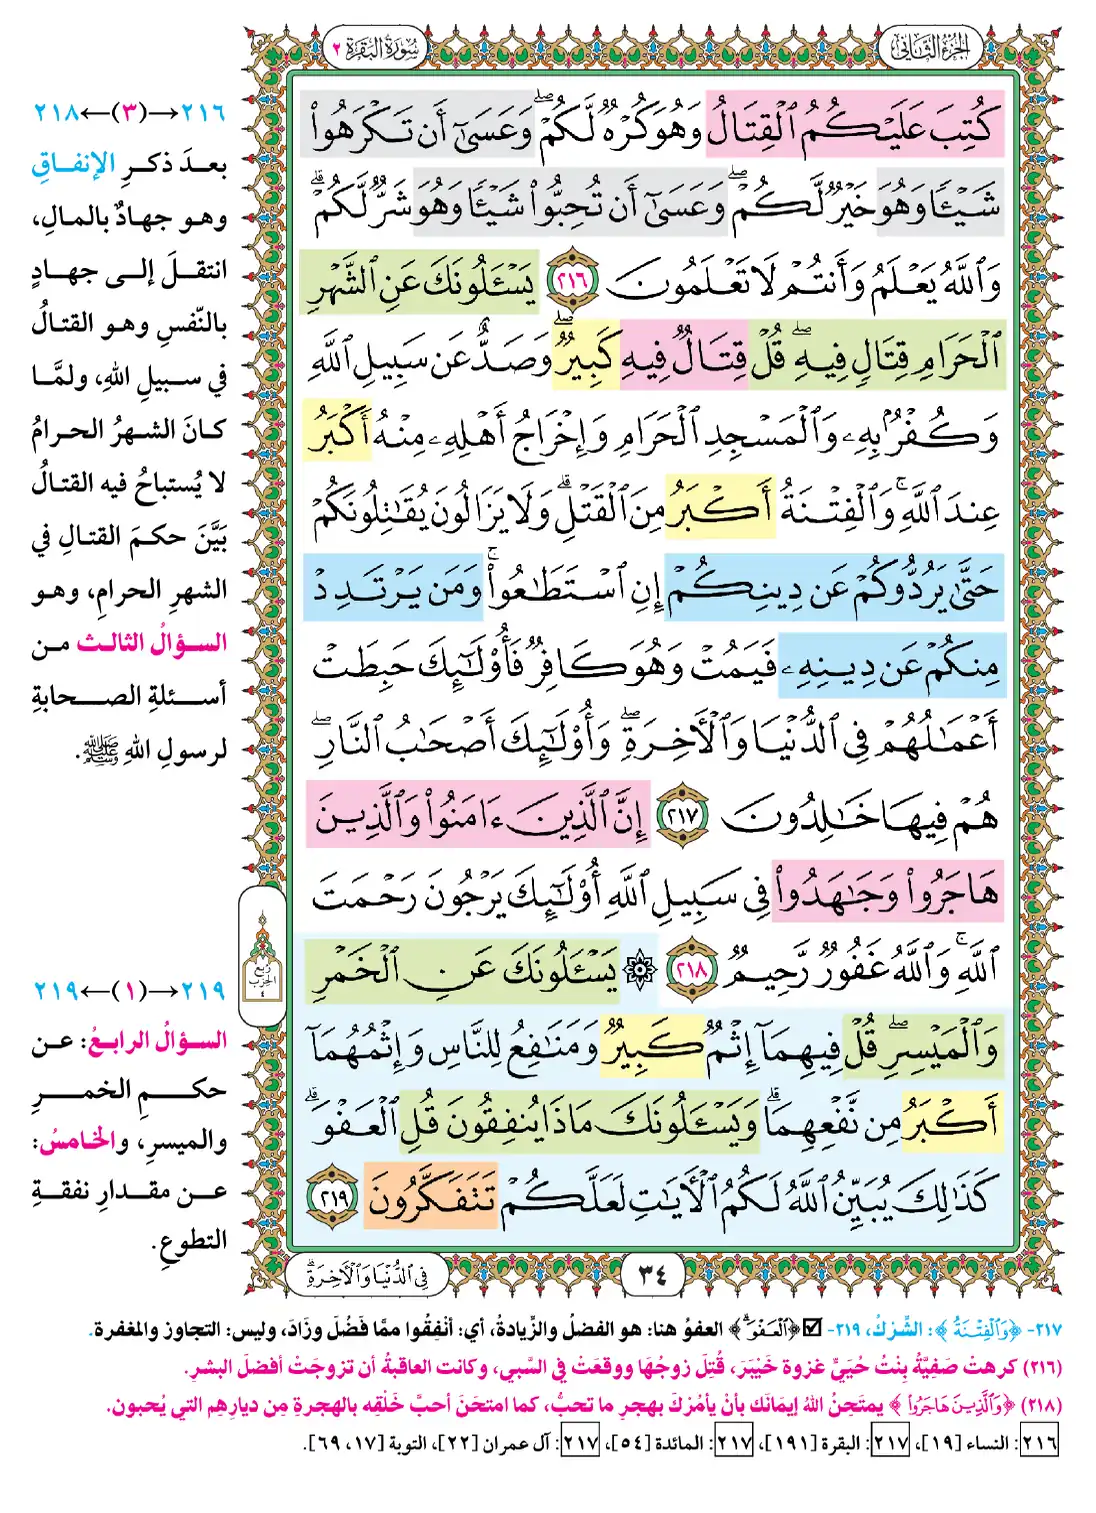 الجزء الثاني
سورة البقرة ٢
كُتِبَ عَلَيْكُمُ ٱلْقِتَالُ وَهُوَ كُرْهٌ لَّكُمْ ۖ وَعَسَىٰٓ أَن تَكْرَهُوا۟
شَيْـًٔا وَهُوَ خَيْرٌ لَّكُمْ ۖ وَعَسَىٰٓ أَن تُحِبُّوا۟ شَيْـًٔا وَهُوَ شَرٌّ لَّكُمْ ۗ
وَٱللَّهُ يَعْلَمُ وَأَنتُمْ لَا تَعْلَمُونَ ٢١٦ يَسْـَٔلُونَكَ عَنِ ٱلشَّهْرِ
ٱلْحَرَامِ قِتَالٍ فِيهِ ۖ قُلْ قِتَالٌ فِيهِ كَبِيرٌ ۖ وَصَدٌّ عَن سَبِيلِ ٱللَّهِ
وَكُفْرٌۢ بِهِۦ وَٱلْمَسْجِدِ ٱلْحَرَامِ وَإِخْرَاجُ أَهْلِهِۦ مِنْهُ أَكْبَرُ
عِندَ ٱللَّهِ ۚ وَٱلْفِتْنَةُ أَكْبَرُ مِنَ ٱلْقَتْلِ ۗ وَلَا يَزَالُونَ يُقَـٰتِلُونَكُمْ
حَتَّىٰ يَرُدُّوكُمْ عَن دِينِكُمْ إِنِ ٱسْتَطَـٰعُوا۟ ۚ وَمَن يَرْتَدِدْ
مِنكُمْ عَن دِينِهِۦ فَيَمُتْ وَهُوَ كَافِرٌ فَأُو۟لَـٰٓئِكَ حَبِطَتْ
أَعْمَـٰلُهُمْ فِى ٱلدُّنْيَا وَٱلْـَٔاخِرَةِ ۖ وَأُو۟لَـٰٓئِكَ أَصْحَـٰبُ ٱلنَّارِ ۖ
هُمْ فِيهَا خَـٰلِدُونَ ٢١٧ إِنَّ ٱلَّذِينَ ءَامَنُوا۟ وَٱلَّذِينَ
هَاجَرُوا۟ وَجَـٰهَدُوا۟ فِى سَبِيلِ ٱللَّهِ أُو۟لَـٰٓئِكَ يَرْجُونَ رَحْمَتَ
ٱللَّهِ ۚ وَٱللَّهُ غَفُورٌ رَّحِيمٌ ٢١٨ ۞ يَسْـَٔلُونَكَ عَنِ ٱلْخَمْرِ
وَٱلْمَيْسِرِ ۖ قُلْ فِيهِمَآ إِثْمٌ كَبِيرٌ وَمَنَـٰفِعُ لِلنَّاسِ وَإِثْمُهُمَآ
أَكْبَرُ مِن نَّفْعِهِمَا ۗ وَيَسْـَٔلُونَكَ مَاذَا يُنفِقُونَ قُلِ ٱلْعَفْوَ ۗ
كَذَٰلِكَ يُبَيِّنُ ٱللَّهُ لَكُمُ ٱلْـَٔايَـٰتِ لَعَلَّكُمْ تَتَفَكَّرُونَ ٢١٩
٣٤
فِى ٱلدُّنْيَا وَٱلْـَٔاخِرَةِ ۗ
ربع
الحزب
٤
٢١٦→(٣)←٢١٨
بعدَ ذكرِ الإنفاقِ
وهو جهادٌ بالمالِ،
انتقلَ إلى جهادٍ
بالنّفسِ وهو القتالُ
في سبيلِ اللهِ، ولمَّا
كانَ الشهرُ الحرامُ
لا يُستباحُ فيه القتالُ
بَيَّنَ حكمَ القتالِ في
الشهرِ الحرامِ، وهو
السؤالُ الثالث من
أسئلةِ الصحابةِ
لرسولِ اللهِ ﷺ.
٢١٩→(١)←٢١٩
السؤالُ الرابعُ: عن
حكمِ الخمرِ
والميسرِ، والخامسُ:
عن مقدارِ نفقةِ
التطوعِ.
٢١٧- ﴿وَٱلْفِتْنَةُ﴾: الشِّركُ، ٢١٩- ☑ ﴿ٱلْعَفْوَ ۗ﴾ العفوُ هنا: هو الفضلُ والزِّيادةُ، أي: أنْفِقُوا ممَّا فَضُلَ وزَادَ، وليس: التجاوز والمغفرة.
(٢١٦) كرهتْ صَفِيَّةُ بِنْتُ حُيَيٍّ غزوة خَيْبَرَ، قُتِلَ زوجُهَا ووقعَتْ في السَّبي، وكانت العاقبةُ أن تزوجَتْ أفضلَ البشرِ.
(٢١٨) ﴿وَٱلَّذِينَ هَاجَرُوا۟﴾ يمتَحِنُ اللهُ إيمَانَك بأنْ يأمُرَكَ بهجرِ ما تحبُّ، كما امتحَنَ أحبَّ خَلْقِه بالهجرةِ مِن ديارِهِم التي يُحبون.
٢١٦: النساء [١٩]، ٢١٧: البقرة [١٩١]، ٢١٧: المائدة [٥٤]، ٢١٧: آل عمران [٢٢]، التوبة [١٧، ٦٩].